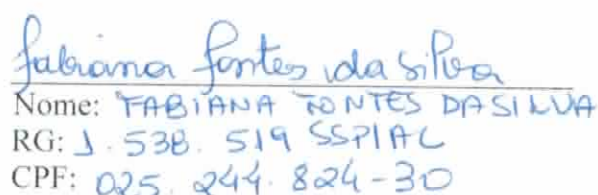 fabiana fontes da silva
Nome: FABIANA FONTES DA SILVA
RG: 1.538.519 SSP/AL
CPF: 025.244.824-30